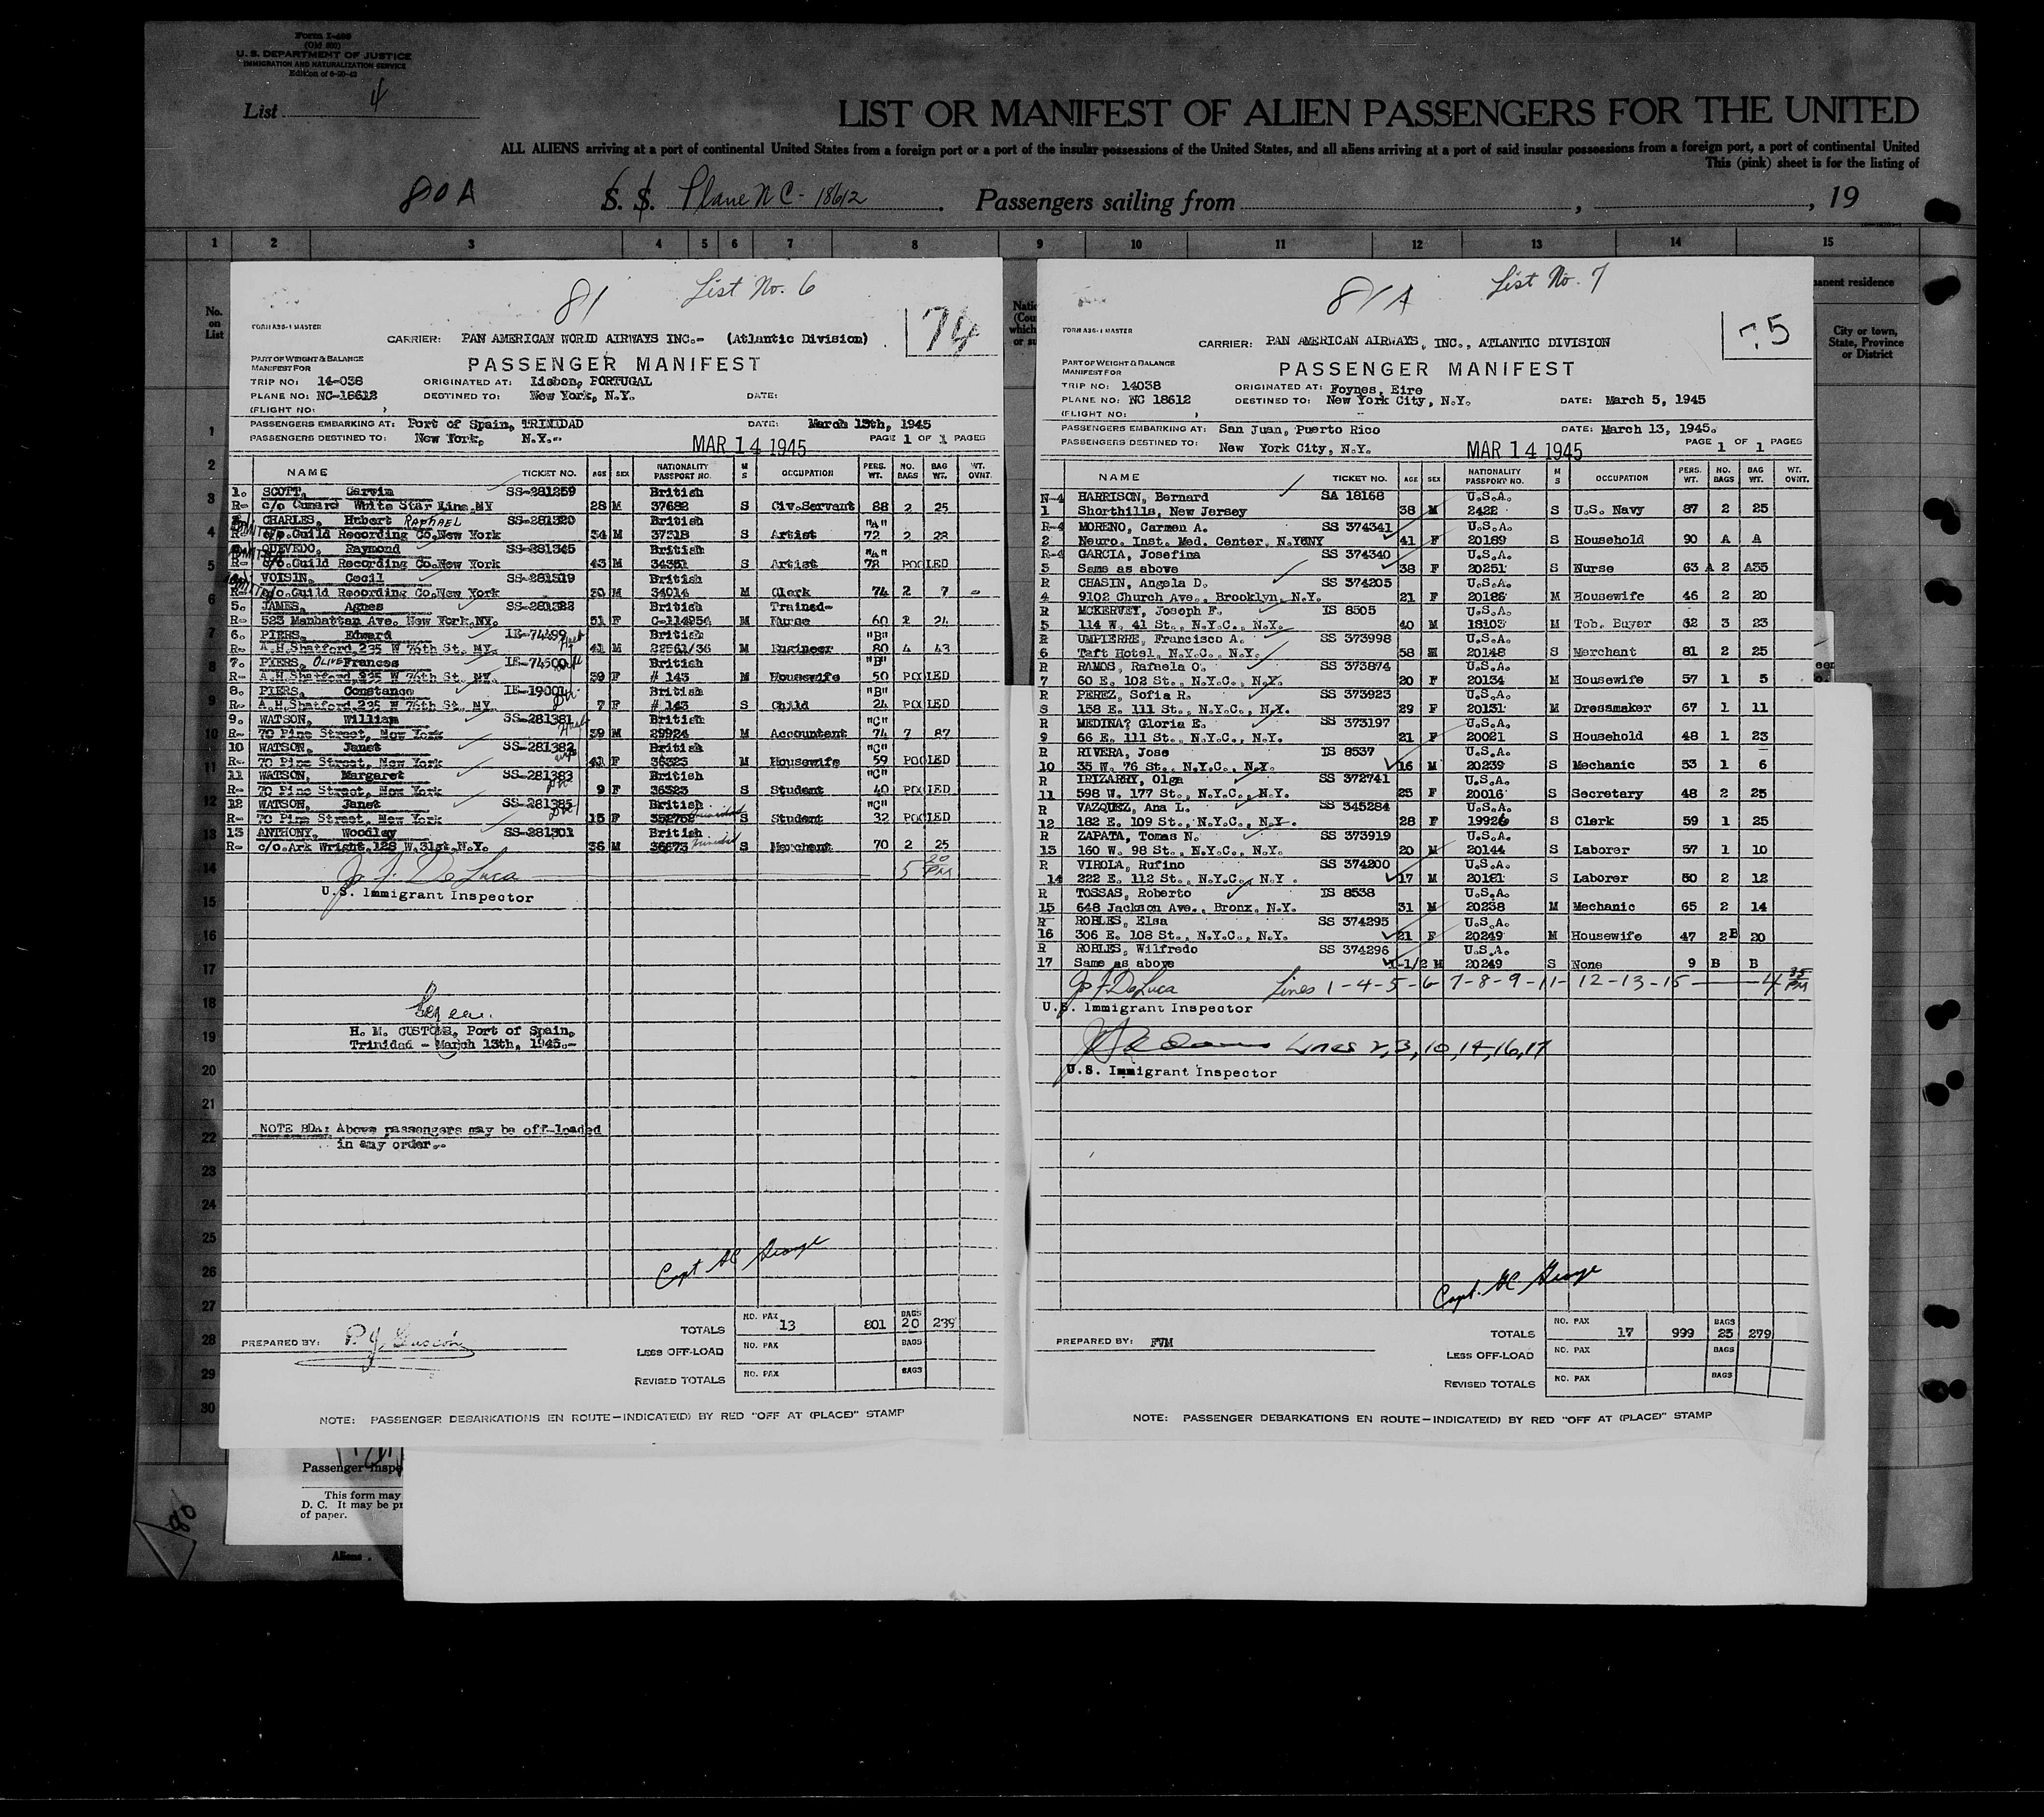 Form I-466
(Old 500)
U. S. DEPARTMENT OF JUSTICE
IMMIGRATION AND NATURALIZATION SERVICE
Edition of 6-20-42
List 4
LIST OR MANIFEST OF ALIEN PASSENGERS FOR THE UNITED
ALL ALIENS arriving at a port of continental United States from a foreign port or a port of the insular possessions of the United States, and all aliens arriving at a port of said insular possessions from a foreign port, a port of continental United
This (pink) sheet is for the listing of
80A S. S. Plane NC-18612 . Passengers sailing from , , 19
1 2 3 4 5 6 7 8 9 10 11 12 13 14 15
No. on List
81 List No. 6
74
FORM A36-1 MASTER
CARRIER: PAN AMERICAN WORLD AIRWAYS INC.- (Atlantic Division)
PART OF WEIGHT & BALANCE
MANIFEST FOR
PASSENGER MANIFEST
TRIP NO: 14-038 ORIGINATED AT: Lisbon, PORTUGAL
PLANE NO: NC-18612 DESTINED TO: New York, N.Y. DATE:
(FLIGHT NO: )
PASSENGERS EMBARKING AT: Port of Spain, TRINIDAD DATE: March 13th, 1945
PASSENGERS DESTINED TO: New York, N.Y.- MAR 14 1945 PAGE 1 OF 1 PAGES
NAME TICKET NO. AGE SEX NATIONALITY PASSPORT NO. M S OCCUPATION PERS. WT. NO. BAGS BAG WT. WT. OVNT.
1. SCOTT, Carvin SS-281259 British
R- c/o Cunard White Star Line, NY 28 M 37682 S Civ.Servant 88 2 25
CHARLES, Hubert RAPHAEL SS-281320 British "A"
R- c/o.Guild Recording Co.New York 34 M 37318 S Artist 72 2 28
QUEVEDO, Raymond SS-281345 British "A"
R- c/o.Guild Recording Co.New York 43 M 34351 S Artist 78 POOLED
VOISIN, Cecil SS-281319 British
R- c/o.Guild Recording Co.New York 30 M 34014 M Clerk 74 2 7
5. JAMES, Agnes SS-281322 British Trained-
R- 523 Manhattan Ave. New York.NY. 51 F C-114954 M Nurse 60 2 24
6. PIERS, Edward IE-74499 British "B"
R- A.H.Shatford,235 W 76th St. NY. 41 M 22561/36 M Engineer 80 4 43
7. PIERS, OLIVE Frances IE-74500 British "B"
R- A.H.Shatford,235 W 76th St. NY. 39 F # 143 M Housewife 50 POOLED
8. PIERS, Constance IE-19001 British "B"
R- A.H.Shatford,235 W 76th St. NY 7 F # 143 S Child 24 POOLED
9. WATSON, William SS-281381 British "C"
R- 70 Pine Street, New York 39 M 29924 M Accountant 74 7 87
10 WATSON, Janet SS-281382 British "C"
R- 70 Pine Street, New York 41 F 36323 M Housewife 59 POOLED
11 WATSON, Margaret SS-281383 British "C"
R- 70 Pine Street, New York 9 F 36323 S Student 40 POOLED
12 WATSON, Janet SS-281385 British "C"
R- 70 Pine Street, New York 15 F 352752 Trinidad S Student 32 POOLED
13 ANTHONY, Woodley SS-281301 British
R- c/o.Ark Wright,128 W.31st.N.Y. 36 M 36673 Trinidad S Merchant 70 2 25
Jo F. DeLuca 5 20 PM
U.S. Immigrant Inspector
H. M. CUSTOMS, Port of Spain,
Trinidad - March 13th, 1945.-
NOTE BDA: Above passengers may be off-loaded
in any order.-
Capt HC George
PREPARED BY:
TOTALS NO. PAX 13 801 BAGS 20 239
LESS OFF-LOAD NO. PAX BAGS
REVISED TOTALS NO. PAX BAGS
NOTE: PASSENGER DEBARKATIONS EN ROUTE-INDICATE(D) BY RED "OFF AT (PLACE)" STAMP
81A List No. 7
75
FORM A36-1 MASTER
CARRIER: PAN AMERICAN AIRWAYS, INC., ATLANTIC DIVISION
PART OF WEIGHT & BALANCE
MANIFEST FOR
PASSENGER MANIFEST
TRIP NO: 14038 ORIGINATED AT: Foynes, Eire
PLANE NO: NC 18612 DESTINED TO: New York City, N.Y. DATE: March 5, 1945
(FLIGHT NO: )
PASSENGERS EMBARKING AT: San Juan, Puerto Rico DATE: March 13, 1945.
PASSENGERS DESTINED TO: New York City, N.Y. MAR 14 1945 PAGE 1 OF 1 PAGES
NAME TICKET NO. AGE SEX NATIONALITY PASSPORT NO. M S OCCUPATION PERS. WT. NO. BAGS BAG WT. WT. OVNT.
N-4 HARRISON, Bernard SA 18168 U.S.A.
1 Shorthills, New Jersey 38 M 2422 S U.S. Navy 87 2 25
R-4 MORENO, Carmen A. SS 374341 U.S.A.
2 Neuro. Inst. Med. Center, N.Y6NY 41 F 20189 S Household 90 A A
R-4 GARCIA, Josefina SS 374340 U.S.A.
3 Same as above 38 F 20251 S Nurse 63 A 2 A35
R CHASIN, Angela D. SS 374205 U.S.A.
4 9102 Church Ave., Brooklyn, N.Y. 21 F 20186 M Housewife 46 2 20
R MCKERVEY, Joseph F. IS 8505 U.S.A.
5 114 W. 41 St., N.Y.C., N.Y. 40 M 18103 M Tob. Buyer 82 3 23
R UMPIERRE, Francisco A. SS 373998 U.S.A.
6 Taft Hotel, N.Y.C., N.Y. 58 M 20148 S Merchant 81 2 25
R RAMOS, Rafaela O. SS 373874 U.S.A.
7 60 E. 102 St., N.Y.C., N.Y. 20 F 20134 M Housewife 57 1 5
R PEREZ, Sofia R. SS 373923 U.S.A.
8 158 E. 111 St., N.Y.C., N.Y. 29 F 20131 M Dressmaker 67 1 11
R MEDINA? Gloria E. SS 373197 U.S.A.
9 66 E. 111 St., N.Y.C., N.Y. 21 F 20021 S Household 48 1 23
R RIVERA, Jose IS 8537 U.S.A.
10 35 W. 76 St., N.Y.C., N.Y. 16 M 20239 S Mechanic 53 1 6
R IRIZARRY, Olga SS 372741 U.S.A.
11 598 W. 177 St., N.Y.C., N.Y. 25 F 20016 S Secretary 48 2 25
R VAZQUEZ, Ana L. SS 345284 U.S.A.
12 182 E. 109 St., N.Y.C., N.Y. 28 F 19926 S Clerk 59 1 25
R ZAPATA, Tomas N. SS 373919 U.S.A.
13 160 W. 98 St., N.Y.C., N.Y. 20 M 20144 S Laborer 57 1 10
R VIROLA, Rufino SS 374200 U.S.A.
14 222 E. 112 St., N.Y.C., N.Y. 17 M 20181 S Laborer 50 2 12
R TOSSAS, Roberto IS 8538 U.S.A.
15 648 Jackson Ave., Bronx, N.Y. 31 M 20238 M Mechanic 65 2 14
R ROBLES, Elsa SS 374295 U.S.A.
16 306 E. 108 St., N.Y.C., N.Y. 21 F 20249 M Housewife 47 2B 20
R ROBLES, Wilfredo SS 374296 U.S.A.
17 Same as above 1-1/2 M 20249 S None 9 B B
Jo F DeLuca Lines 1-4-5-6-7-8-9-11-12-13-15 4 35 PM
U.S. Immigrant Inspector
Lines 2,3,10,14,16,17
U.S. Immigrant Inspector
Capt. HC George
PREPARED BY: FVM
TOTALS NO. PAX 17 999 BAGS 25 279
LESS OFF-LOAD NO. PAX BAGS
REVISED TOTALS NO. PAX BAGS
NOTE: PASSENGER DEBARKATIONS EN ROUTE-INDICATE(D) BY RED "OFF AT (PLACE)" STAMP
manent residence
City or town, State, Province or District
1
2
3
4
5
6
7
8
9
10
11
12
13
14
15
16
17
18
19
20
21
22
23
24
25
26
27
28
29
30
Passenger Inspe
This form may
D. C. It may be pr
of paper.
80
Aliens .